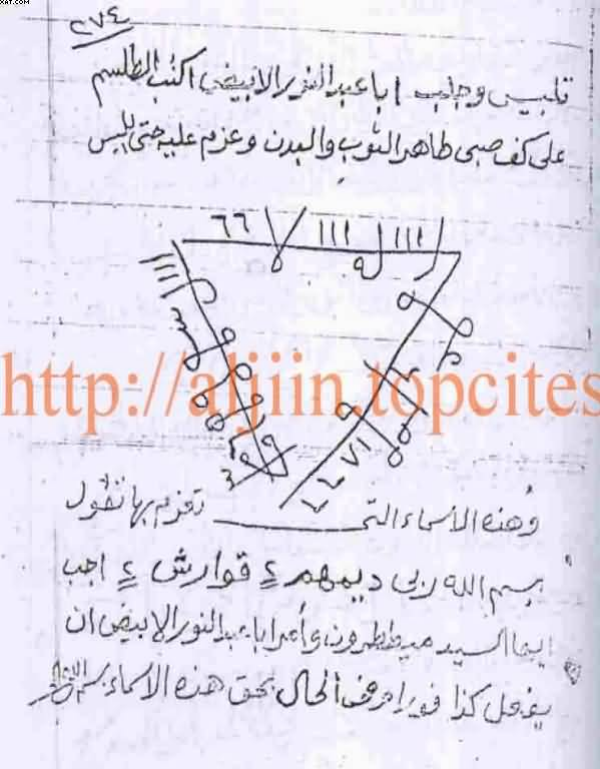 XAT.COM
٢٧٤
تلبيس وجلب ابا عبد النور الابيض اكتب الطلسم
على كف صبى طاهر الثوب والبدن وعزم عليه حتى يلبس
٦٦ ااا ااا
ااا
٧١
http://aljiin.topcites
وهذه الاسماء التى تعزم بها تقول
بسم الله ربى ديمهم ٢ قوارش ٢ اجب
ايها السيد ميططرون وأمر ابا عبد النور الابيض ان
يفعل كذا فورا فى الحال بحق هذه الاسماء